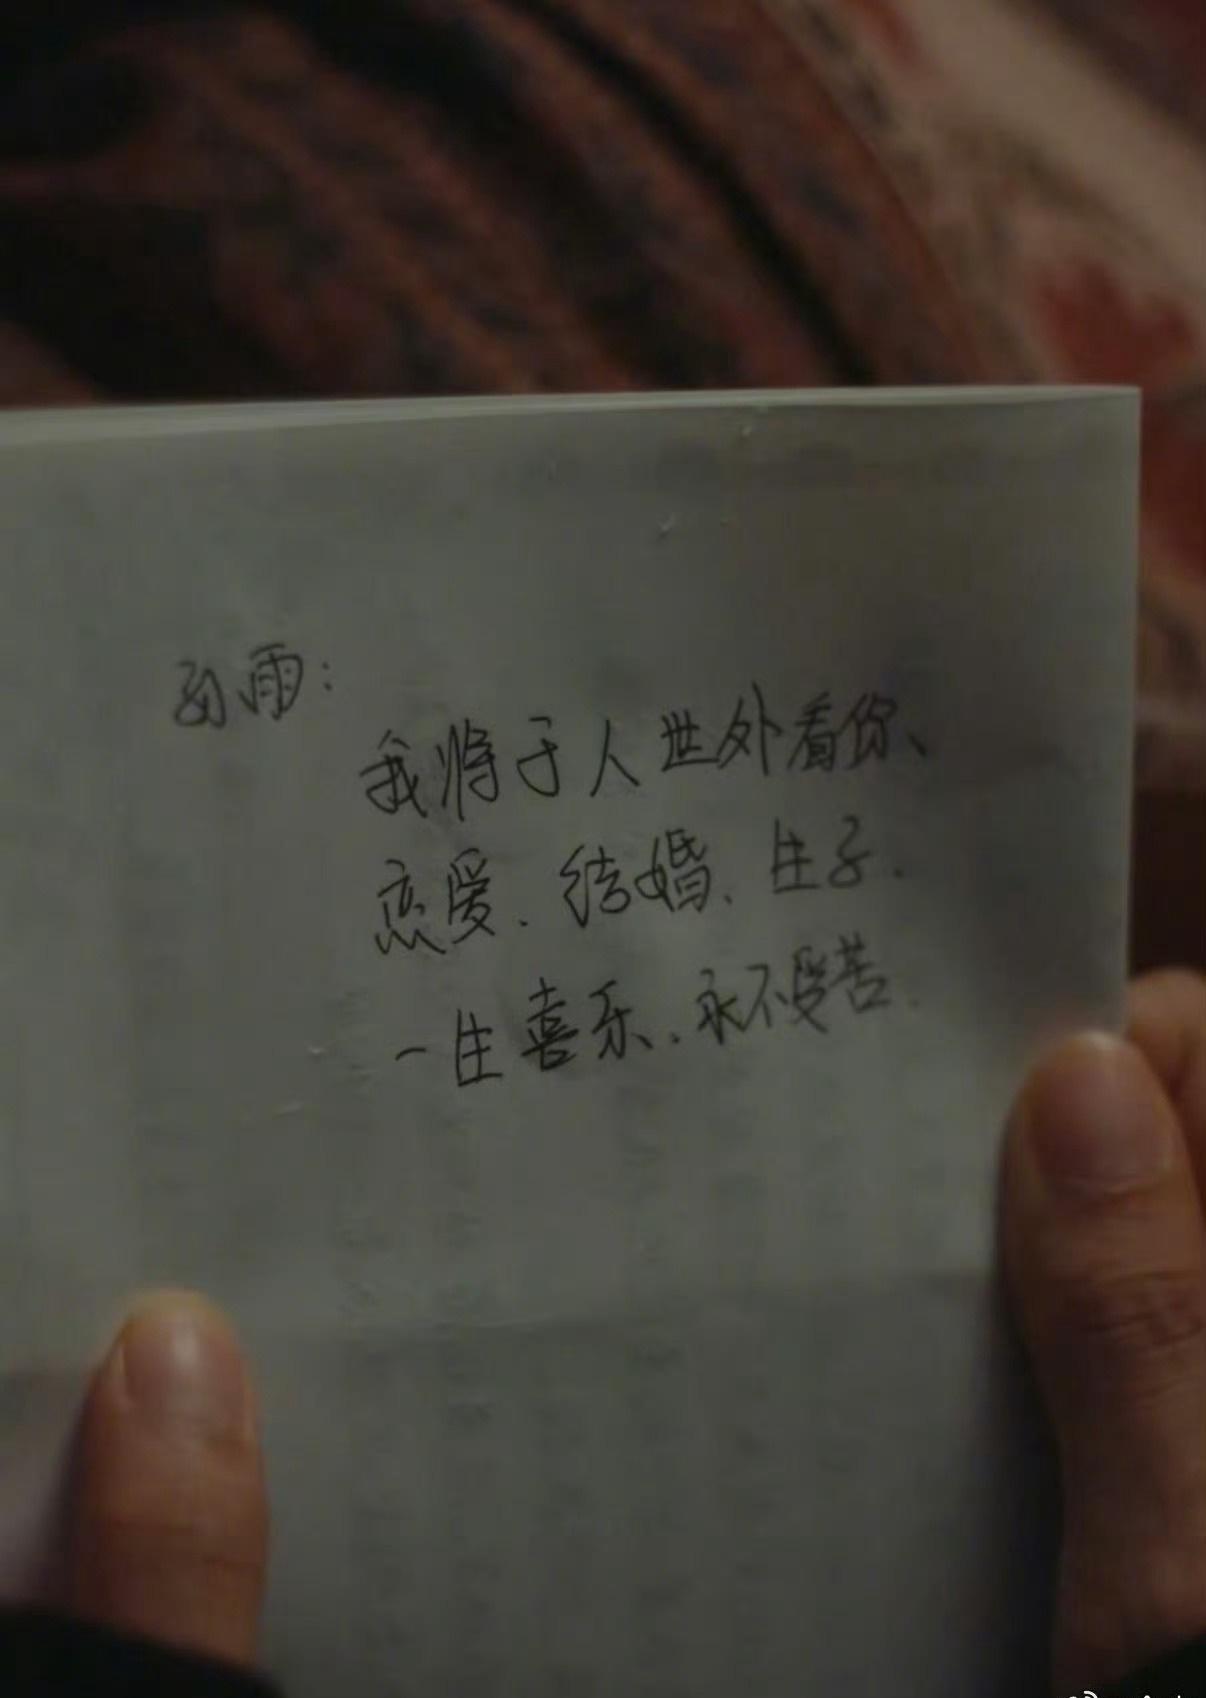 雨：
我将于人世外看你、
恋爱、结婚、生子.
一生喜乐.永不受苦.